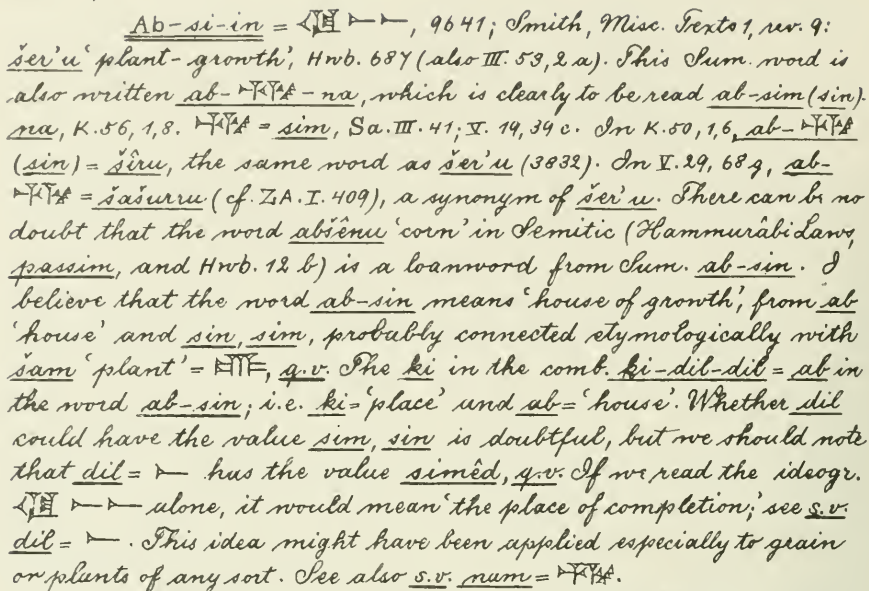 Ab-si-in = 𒆠 𒀸 𒀸, 9641; Smith, Misc. Texts 1, rev. 9:
šer'u 'plant-growth', Hwb. 687 (also III. 53, 2 a). This Sum. word is
also written ab-𒉏-na, which is clearly to be read ab-sim (sin)-
na, K. 56, 1, 8. 𒉏 = sim, Sa. III. 41; V. 19, 39 c. In K. 50, 1, 6, ab-𒉏
(sin) = šîru, the same word as šer'u (3832). In V. 29, 68 g, ab-
𒉏 = šašurru (cf. ZA. I. 409), a synonym of šer'u. There can be no
doubt that the word abšênu 'corn' in Semitic (Hammurâbi Laws,
passim, and Hwb. 12 b) is a loanword from Sum. ab-sin. I
believe that the word ab-sin means 'house of growth', from ab
'house' and sin, sim, probably connected etymologically with
šam 'plant' = 𒌑, q.v. The ki in the comb. ki-dil-dil = ab in
the word ab-sin; i.e. ki = 'place' und ab = 'house'. Whether dil
could have the value sim, sin is doubtful, but we should note
that dil = 𒀸 has the value simêd, q.v. If we read the ideogr.
𒆠 𒀸 𒀸 alone, it would mean 'the place of completion;' see s.v.
dil = 𒀸. This idea might have been applied especially to grain
or plants of any sort. See also s.v. num = 𒉏.